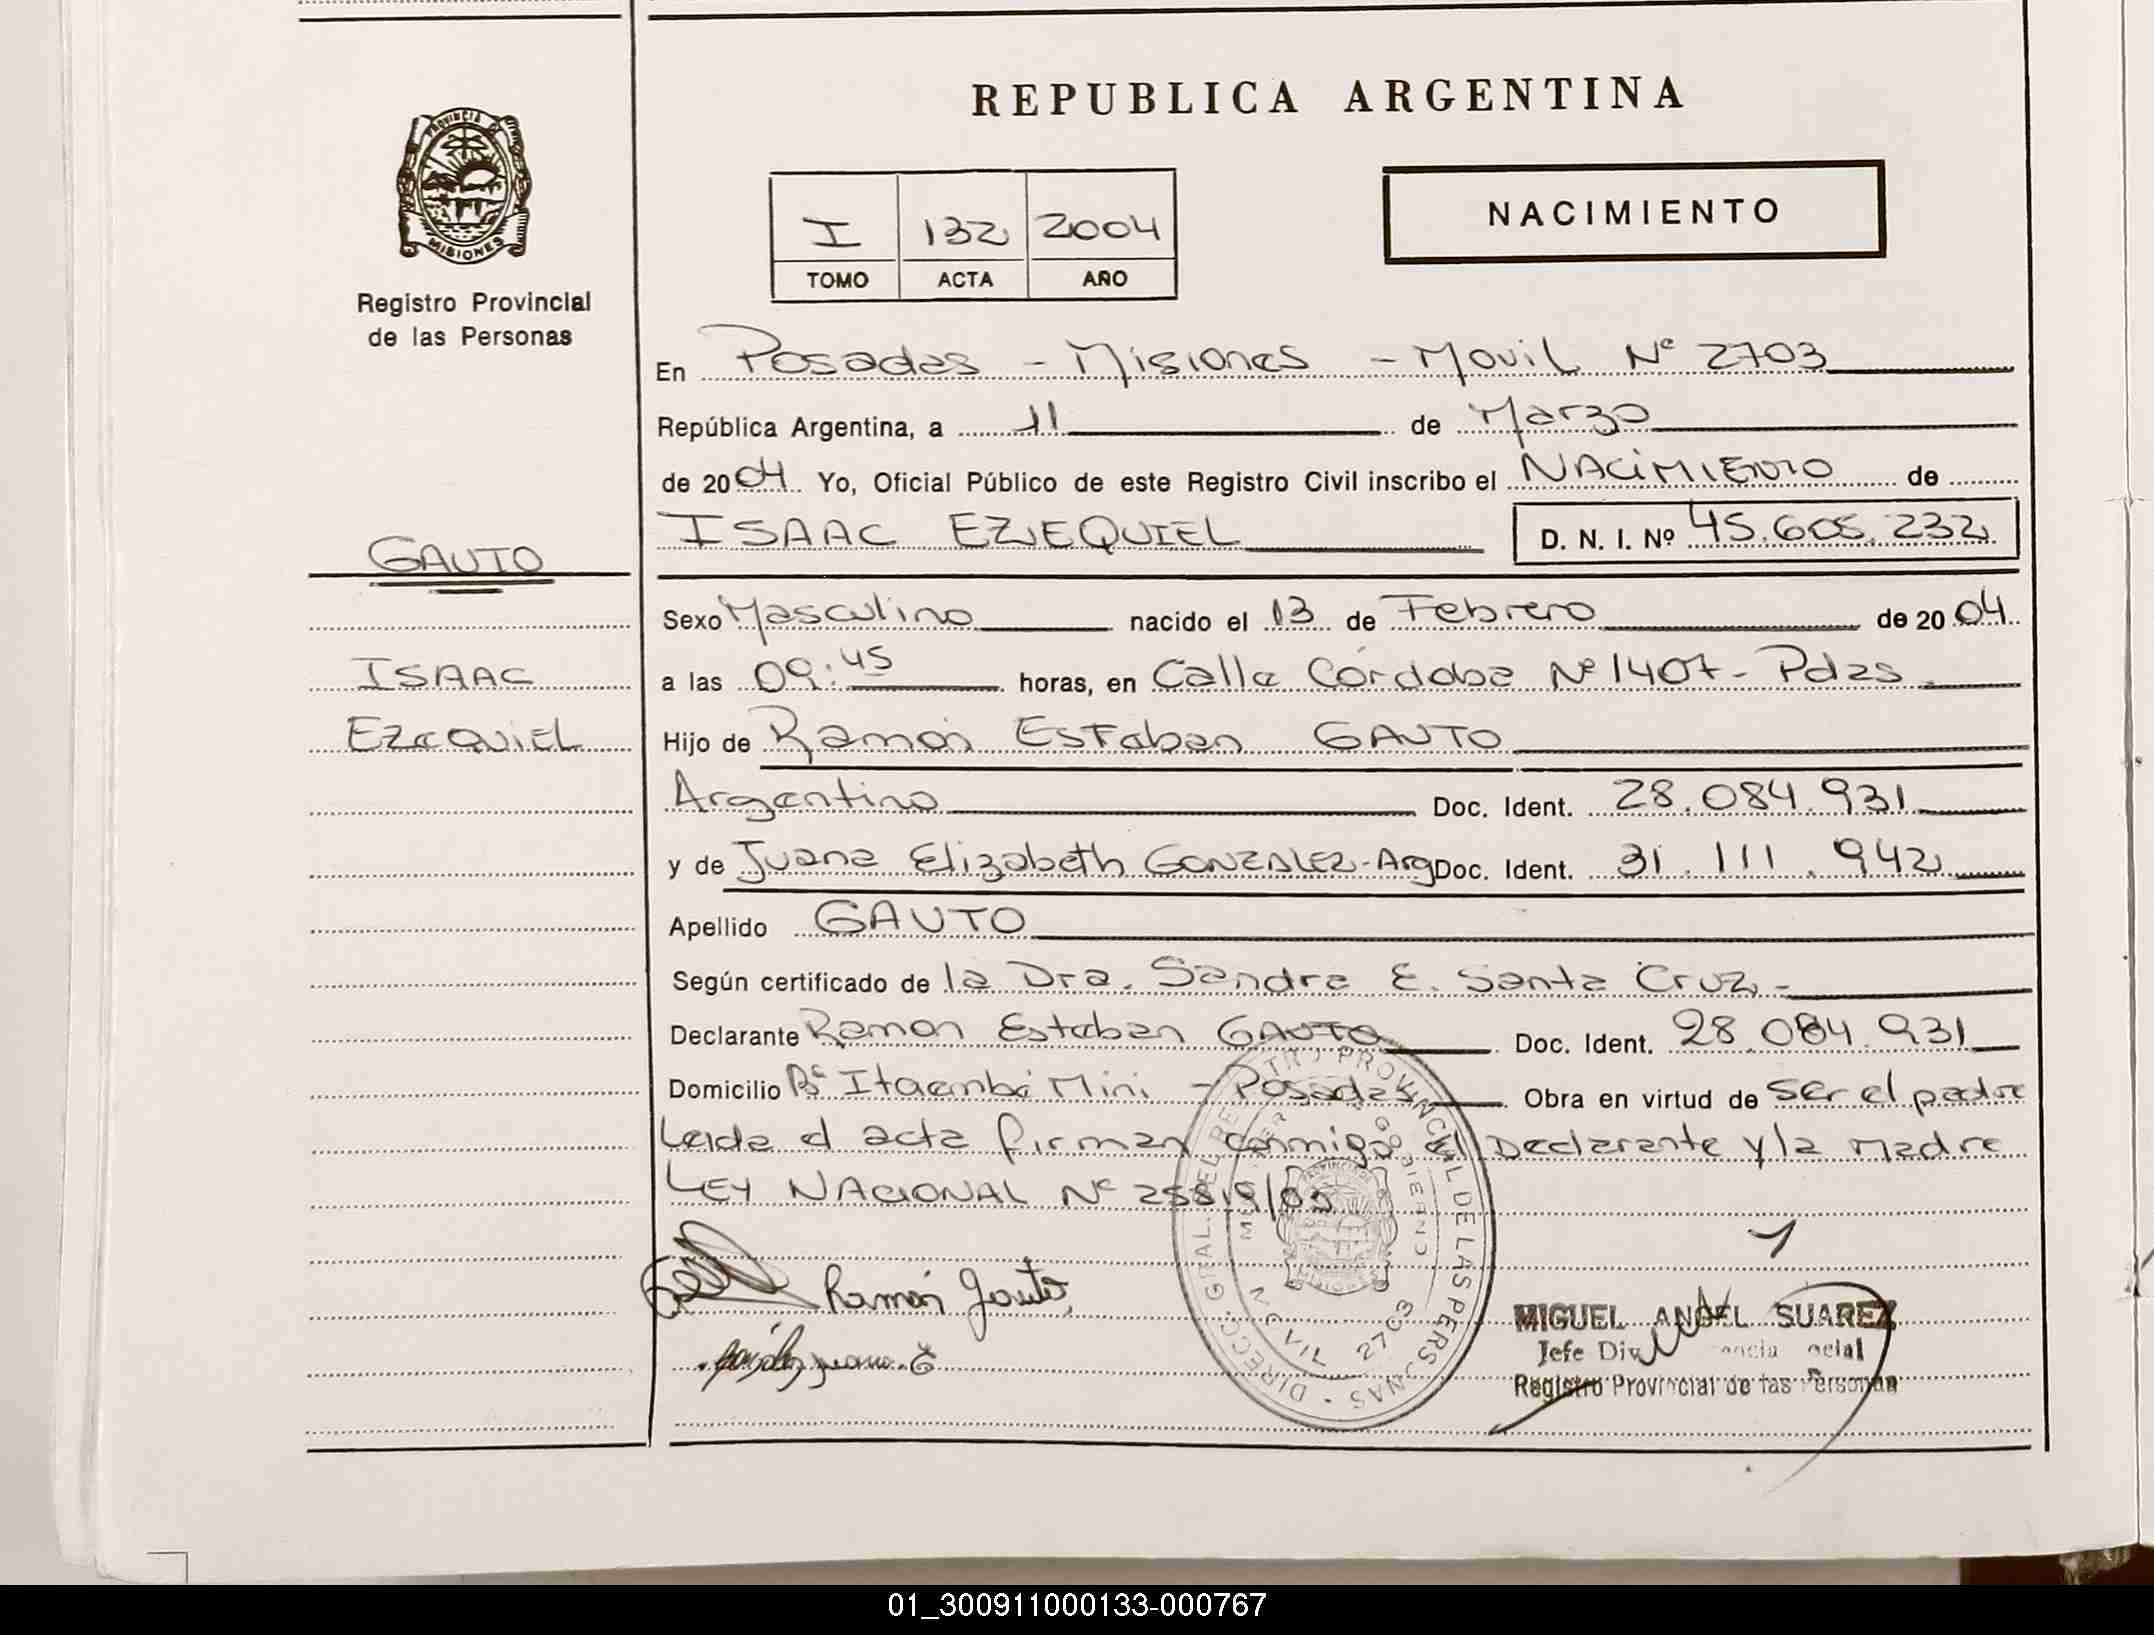 REPUBLICA ARGENTINA
PROVINCIA DE
MISIONES
Registro Provincial
de las Personas
I 132 2004
TOMO ACTA AÑO
NACIMIENTO
En Posadas - Misiones - Movil Nº 2703
República Argentina, a 11 de Marzo
de 2004 Yo, Oficial Público de este Registro Civil inscribo el NACIMIENTO de
ISAAC EZEQUIEL D. N. I. Nº 45.605.232
GAUTO
ISAAC
EZEQUIEL
Sexo Masculino nacido el 13 de Febrero de 2004
a las 09:45 horas, en Calle Córdoba Nº 1407 - Pdas
Hijo de Ramón Esteban GAUTO
Argentino Doc. Ident. 28.084.931
y de Juana Elizabeth GONZALEZ - Arg Doc. Ident. 31.111.942
Apellido GAUTO
Según certificado de la Dra. Sandra E. Santa Cruz -
Declarante Ramon Esteban GAUTO Doc. Ident. 28.084.931
Domicilio Bº Itaembé Mini - Posadas Obra en virtud de ser el padre
Leida el acta firman conmigo el Declarante y la Madre
LEY NACIONAL Nº 25819/03
Ramón Gauto
DIRECC. GRAL. DEL REGISTRO PROVINCIAL DE LAS PERSONAS
MOVIL 2703
MIGUEL ANGEL SUAREZ
Jefe
Registro Provincial de las Personas
01_300911000133-000767